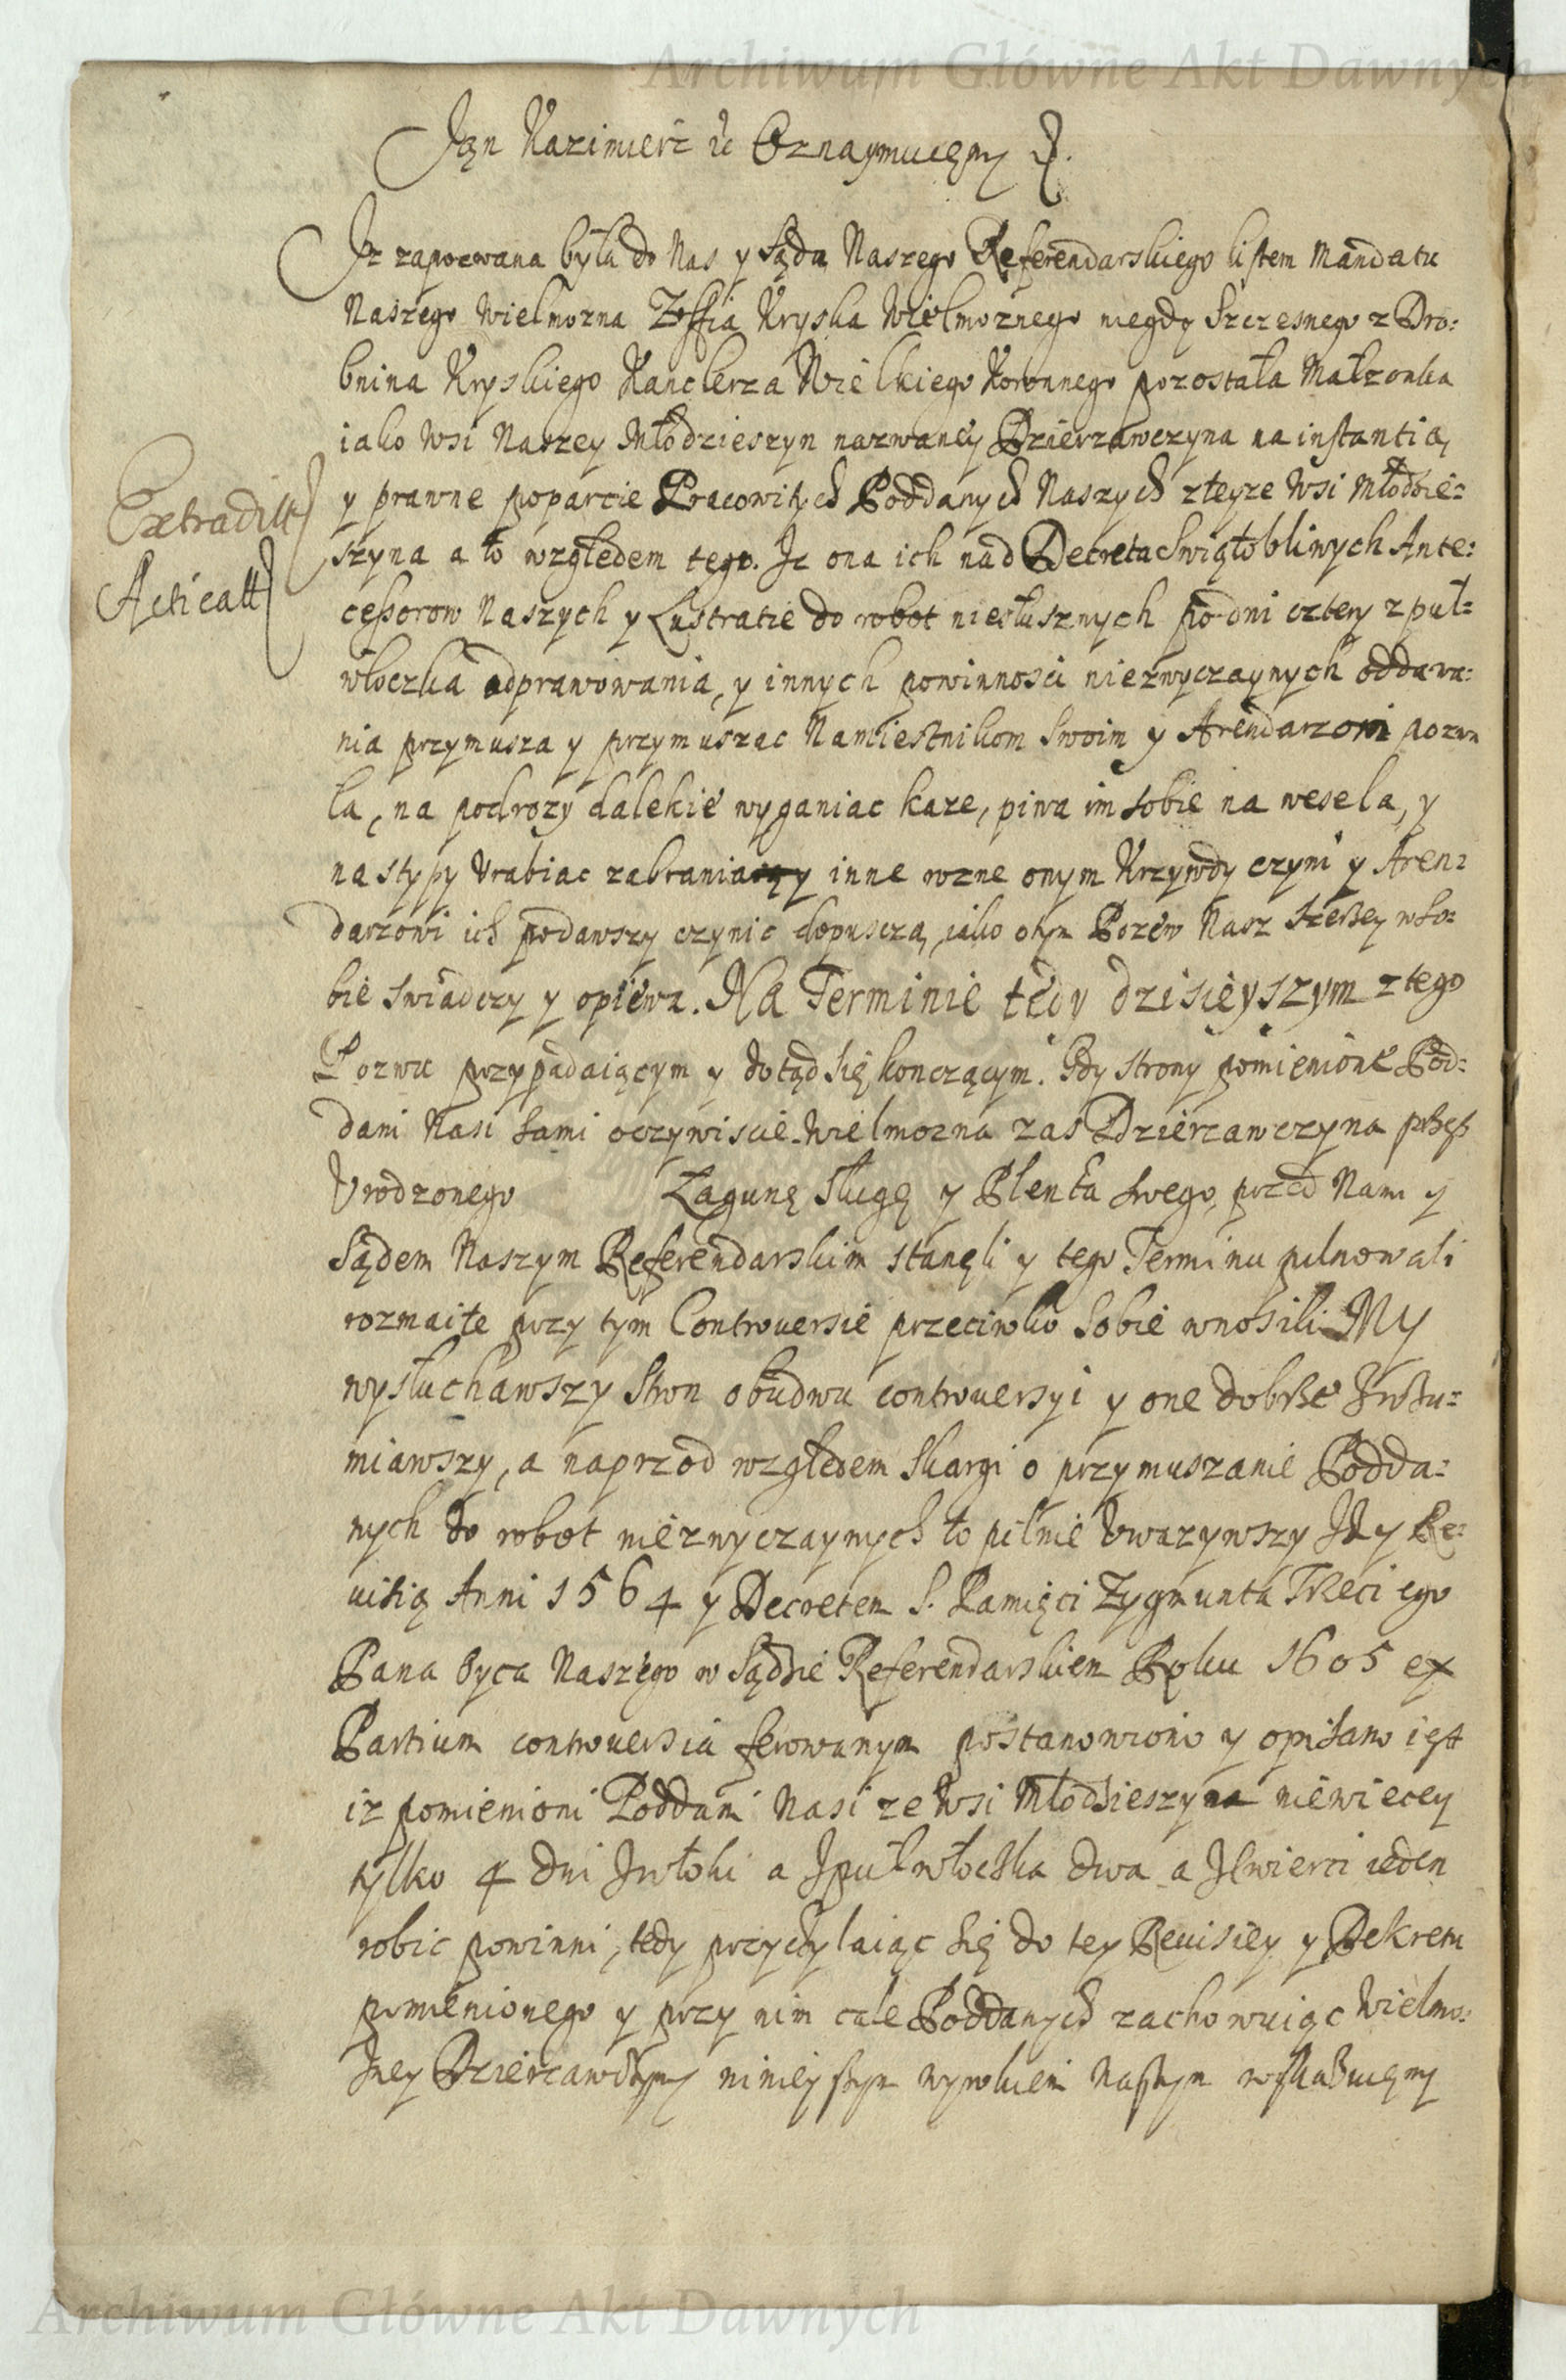 Archiwum Główne Akt Dawnych
Jan Kazimierz etc Oznaymuięmy
Iz zapozwana była do Nas y Sądu Naszego Referendarskiego listem Mandatu
Naszego Wielmozna Zoffia Kryska Wielmoznego niegdy Szczesnego z Dro:
bnina Kryskiego Kanclerza Wielkiego Koronnego pozostała Małzonka
iako Wsi Naszey Młodzieszyn nazwaney Dzierzawczyna na instantią
y prawne poparcie Pracowitych Poddanych Naszych zteyze Wsi Młodzie:
Extraditt
szyna a to względem tego. Iz ona ich nad Decreta Swiątobliwych Ante:
Acticatt
cessorow Naszych y Lustratie do robot niesłusznych po dni cztery z puł:
włoczka odprawowania, y innych powinnosci niezwyczaynych oddawa:
nia przymusza y przymuszac Namiestnikom Swoim y Arendarzom pozwa
la, na podrozy dalekie wyganiac kaze, piwa im sobie na wesela, y
na stypy Vrabiac zabrania y inne rozne onym Krzywdy czyni y Aren:
darzowi ich podawszy czynic dopuscza, iako otym Pozew Nasz szerszey wso:
bie swiadczy y opiewa. Na Terminie tedy dzisieyszym z tego
Pozwu przypadaiącym y dotąd się konczącym. Gdy strony pomienione Pod:
dani Nasi sami oczywiscie Wielmozna zas Dzierzawczyna przez
Vrodzonego Lagunę Sługę y Plenta swego, przed Nami y
Sądem Naszym Referendarskim stanęli y tego Terminu pilnowali
rozmaite przy tym Controuersie przeciwko Sobie wnosili. My
wysłuchawszy Stron obudwu controuersyi y one dobrze zrozu:
miawszy, a naprzod względem Skargi o przymuszanie Podda:
nych do robot niezwyczaynych to pilnie Vwazywszy Iz y Re:
uisią Anni 1564 y Decretem S. Pamięci Zygmunta Trzeciego
Pana Oyca Naszego w Sądzie Referendarskiem Roku 1605 ex
Partium controuersia ferowanym postanowiono y opisano iest
iz pomienioni Poddani Nasi ze Wsi Młodzieszyna niewiecey
tylko 4 dni zwłoki a zpułwłoczka dwa a zcwierci ieden
robic powinni, tedy przychylaiąc się do tey Reuisiey y Dekretu
pomienionego y przy nim cale Poddanych zachowuiąc Wielmo:
zney Dzierzawczyny ninieyszym wyrokiem Naszym wskazuięmy
Archiwum Główne Akt Dawnych